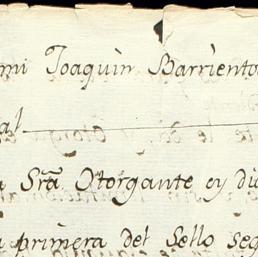 mi Joaquin Barriento
al
Srã Otorgante oy di
a primera del Sello seg